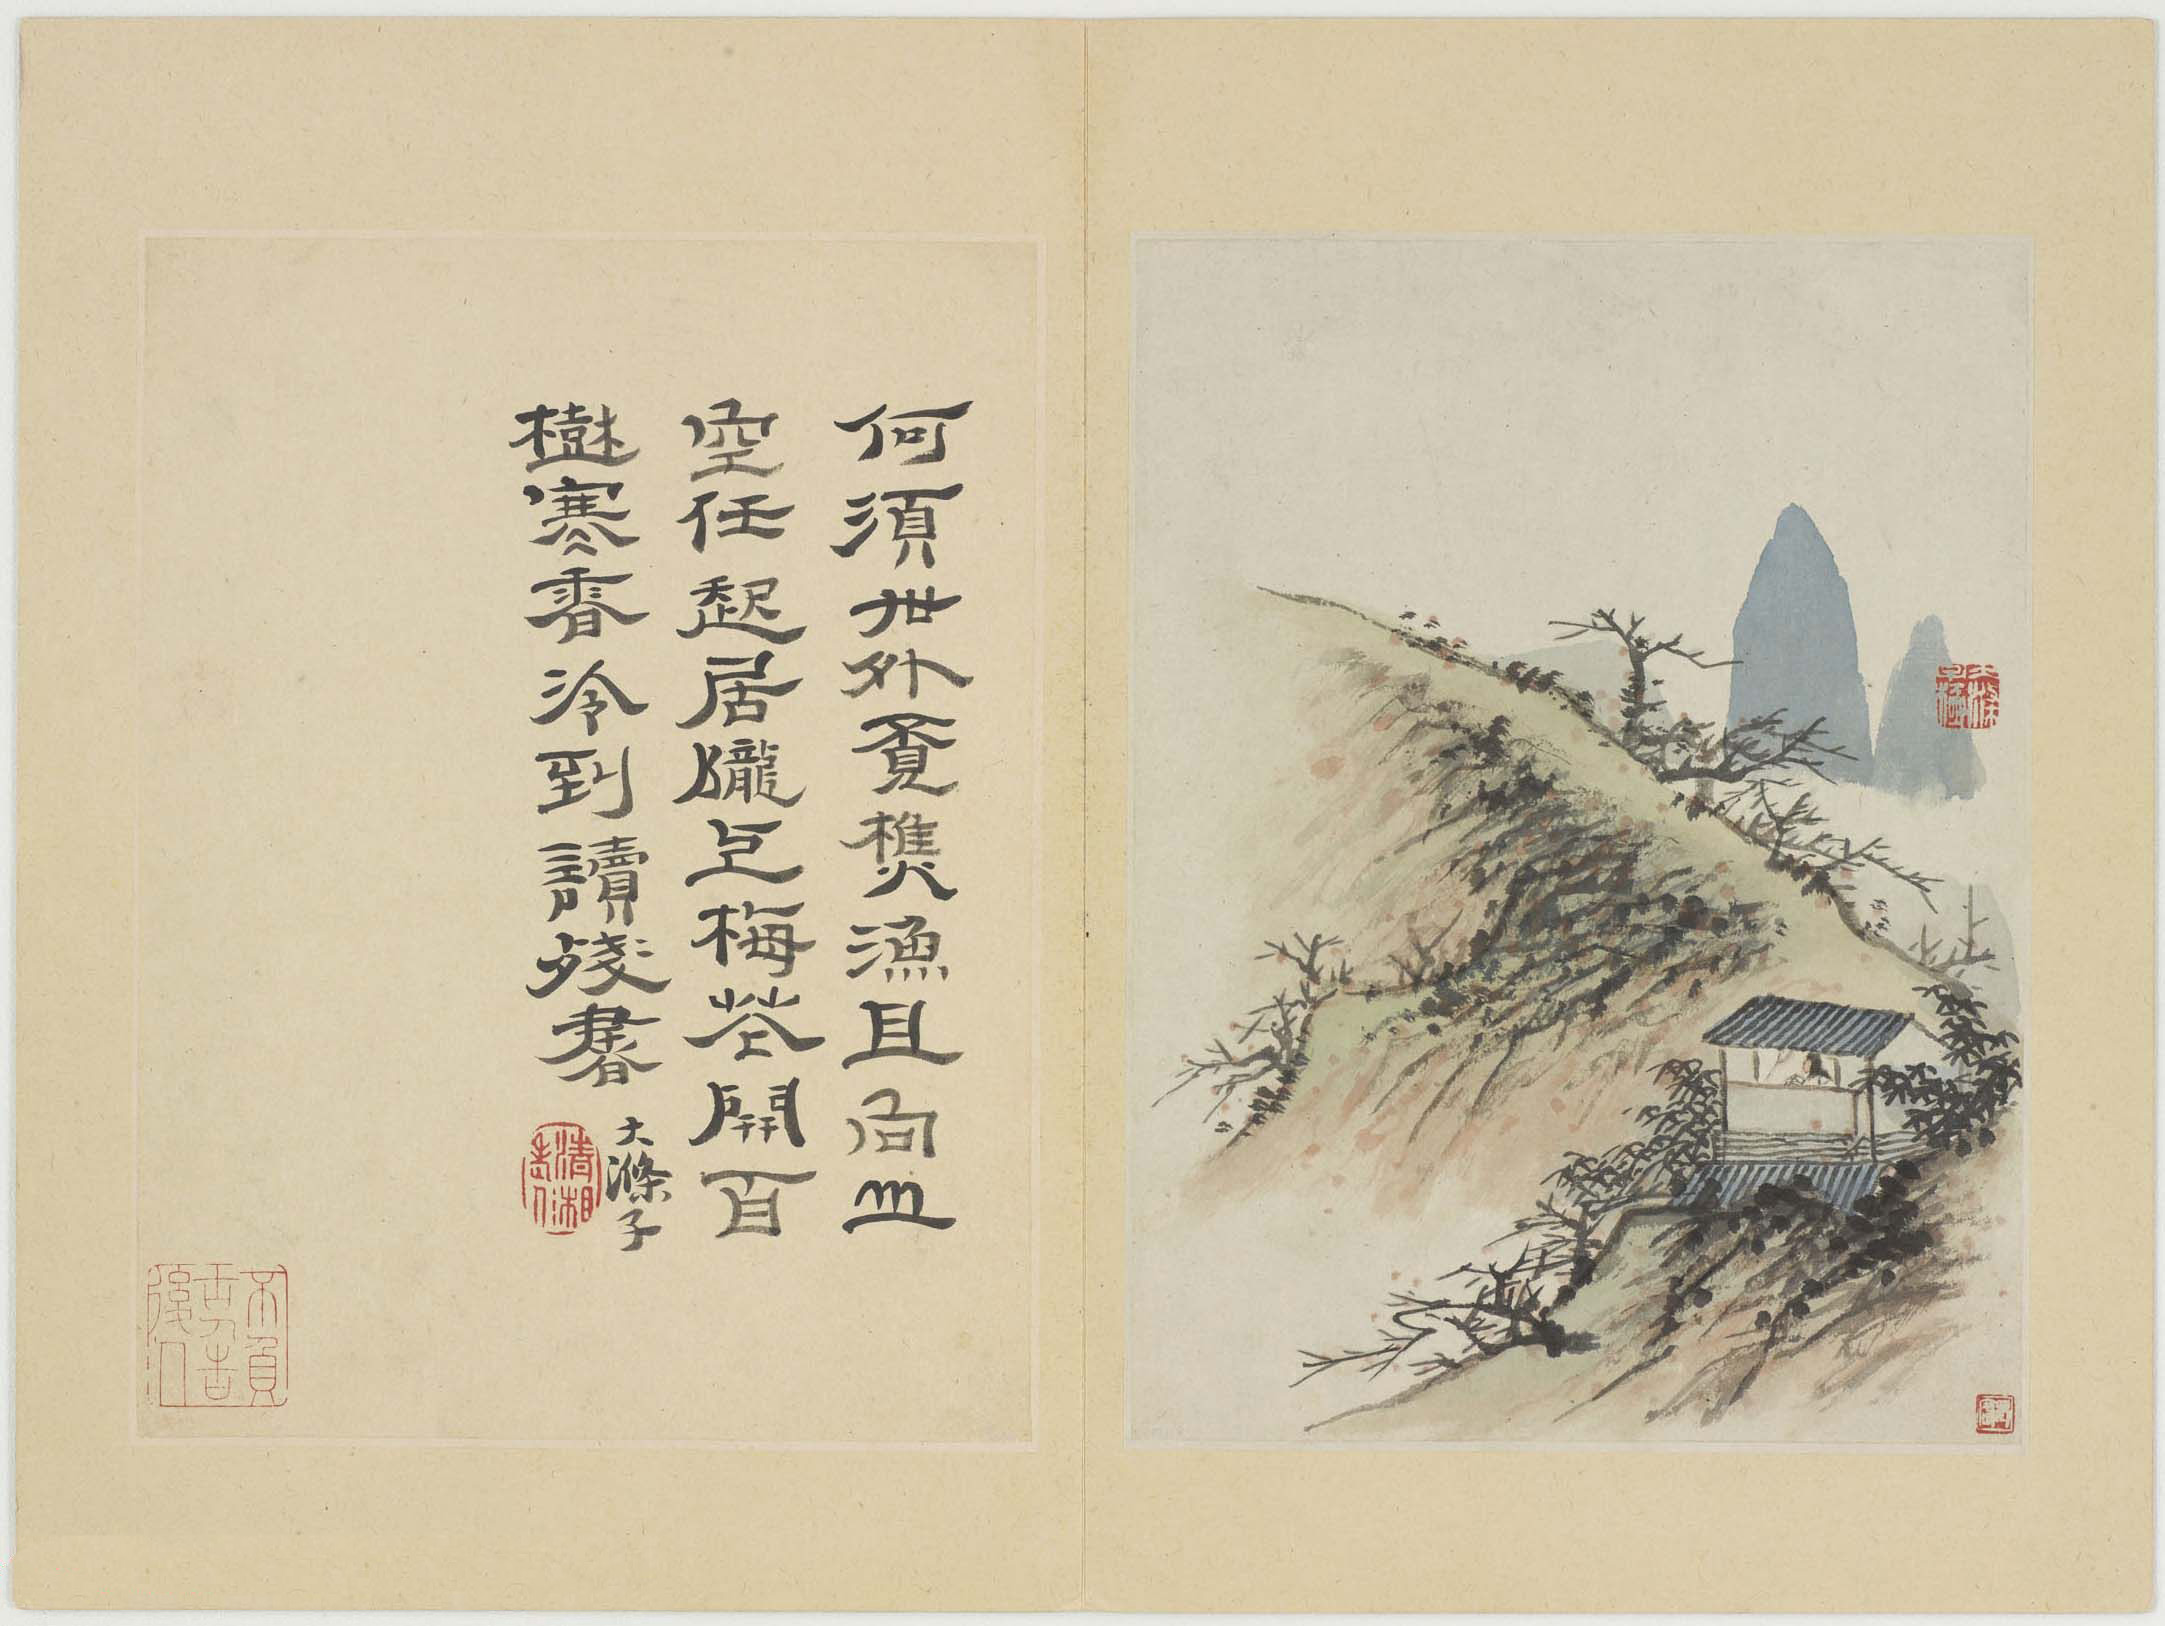 何須世外覔樵漁且向山
空任起居隴上梅花開百
樹寒香冷到讀殘書
大滌子
清湘老人
不負古人告後人